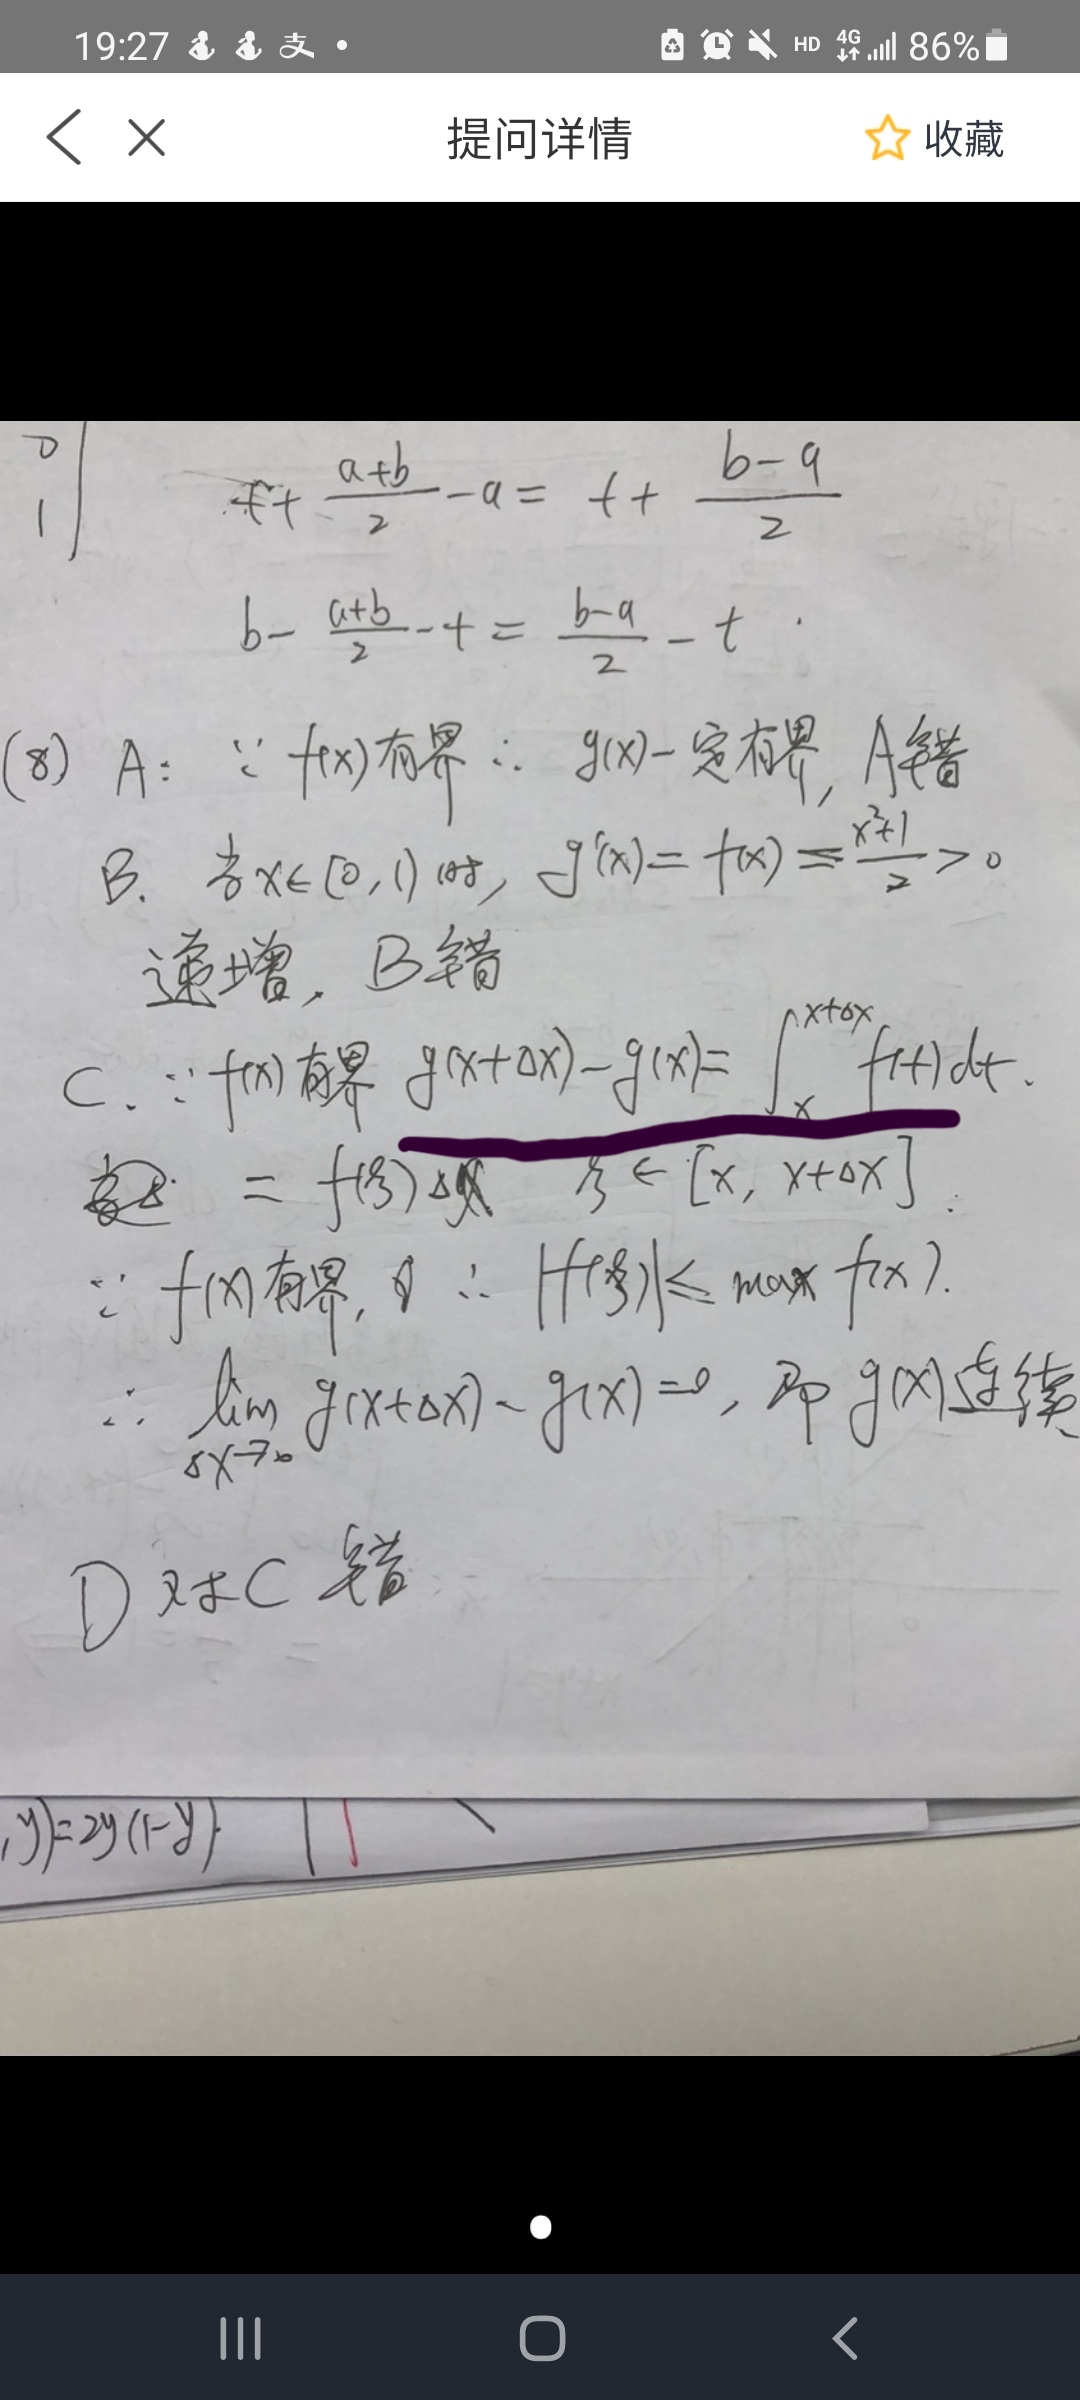 19:27 支 HD 4G 86%
提问详情 收藏
0
1
t+ (a+b)/2 -a= t+ (b-a)/2
b- (a+b)/2 -t= (b-a)/2 -t
(8) A: ∵ f(x)有界∴ g(x)一定有界, A错
B. 当x∈[0,1)时, g'(x)= f(x)= (x²+1)/2 >0
递增, B错
C. ∵ f(x)有界 g(x+Δx)-g(x)= ∫_x^{x+Δx} f(t)dt.
= f(ξ)Δx ξ∈[x, x+Δx].
∵ f(x)有界, ∴ |f(ξ)|≤ max f(x).
∴ lim_{Δx→0} g(x+Δx)-g(x)=0, 即 g(x)连续
D对C错
,y)=2y(1-y)